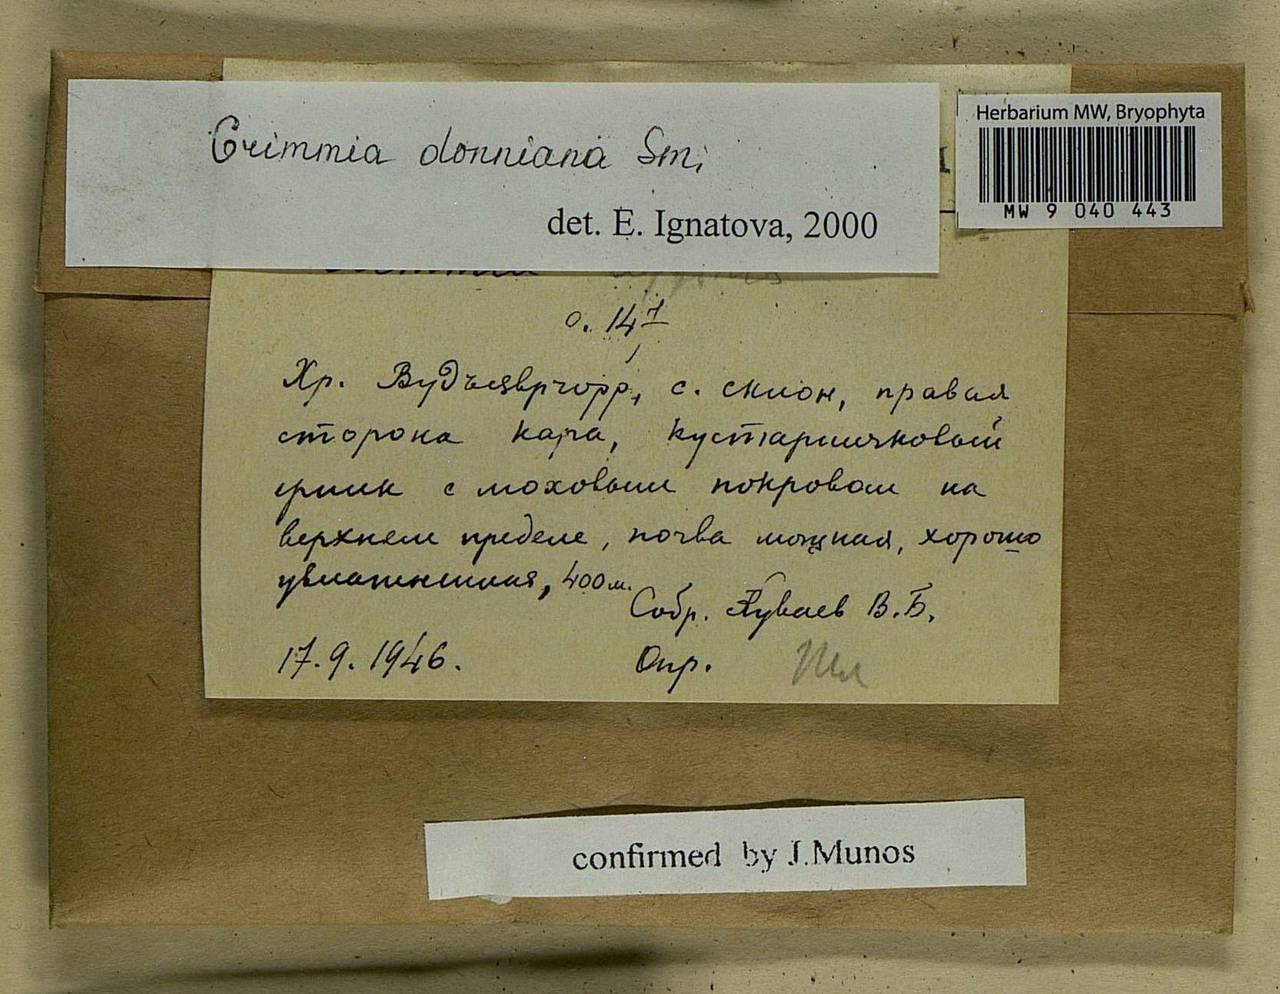 Grimmia donniana Sm.
det. E. Ignatova, 2000
Herbarium MW, Bryophyta
MW 9 040 443
о. 14
Хр. Вудъяврчорр, с. склон, правая
сторона кара, кустарничковый
ярник с моховым покровом на
верхнем пределе, почва мощная, хорошо
увлажненная, 400 м.
Собр. Куваев В.Б.
17.9.1946.
Опр.
confirmed by J.Munos